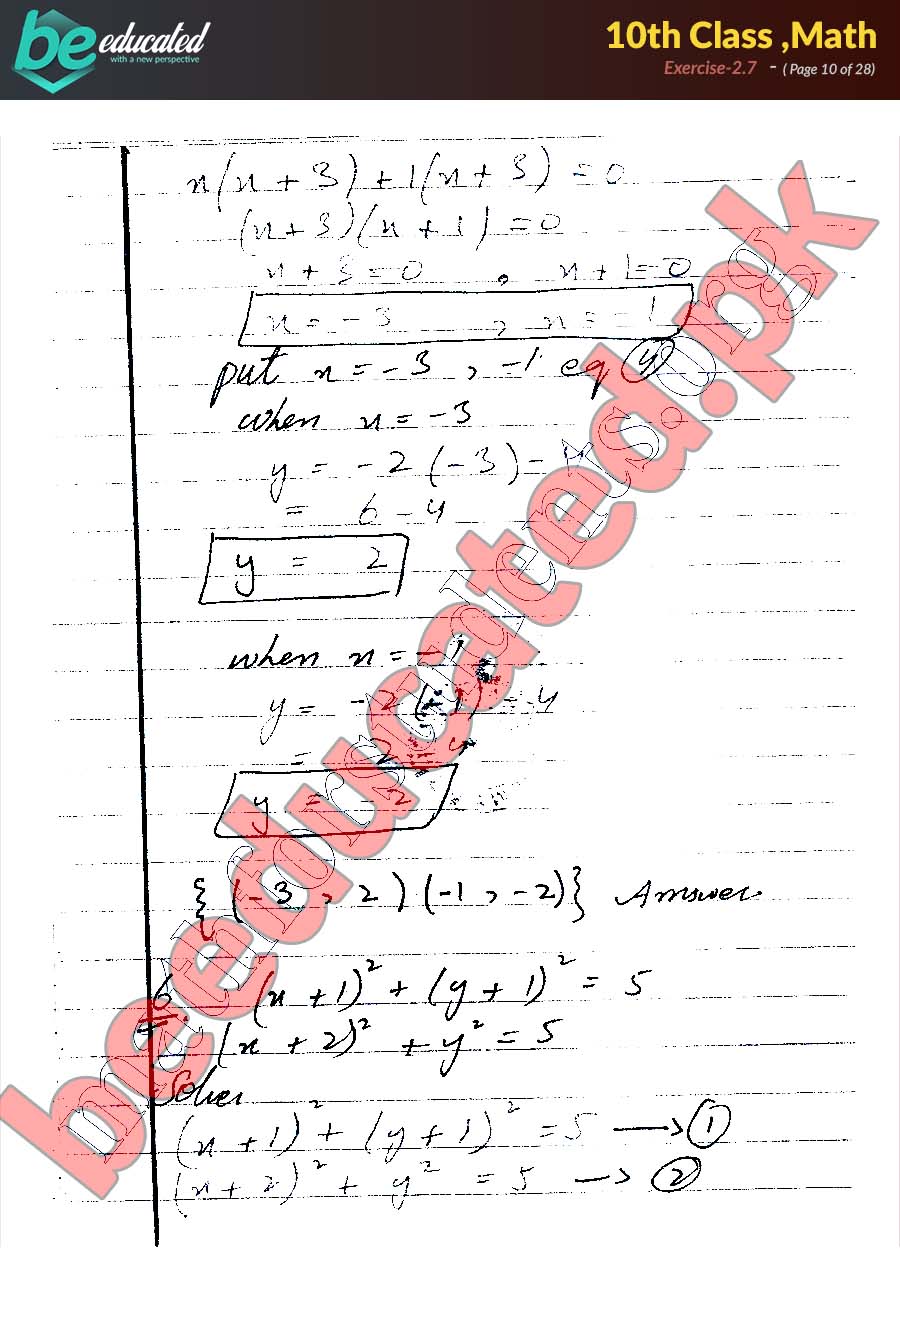 be educated
with a new perspective
10th Class ,Math
Exercise-2.7 - ( Page 10 of 28)
x(x+3)+1(x+3)=0
(x+3)(x+1)=0
x+3=0 , x+1=0
x=-3 , x=-1
put x=-3 , -1 eq (4)
when x=-3
y = -2(-3)-4
= 6-4
y = 2
when x=-1
y= -2(-1) -4
= 2-4
y = -2
{(-3, 2)(-1, -2)} Answer
6. (x+1)² + (y+1)² = 5
(x+2)² + y² = 5
Solve
(x+1)² + (y+1)² = 5 → (1)
(x+2)² + y² = 5 → (2)
beeducated.pk